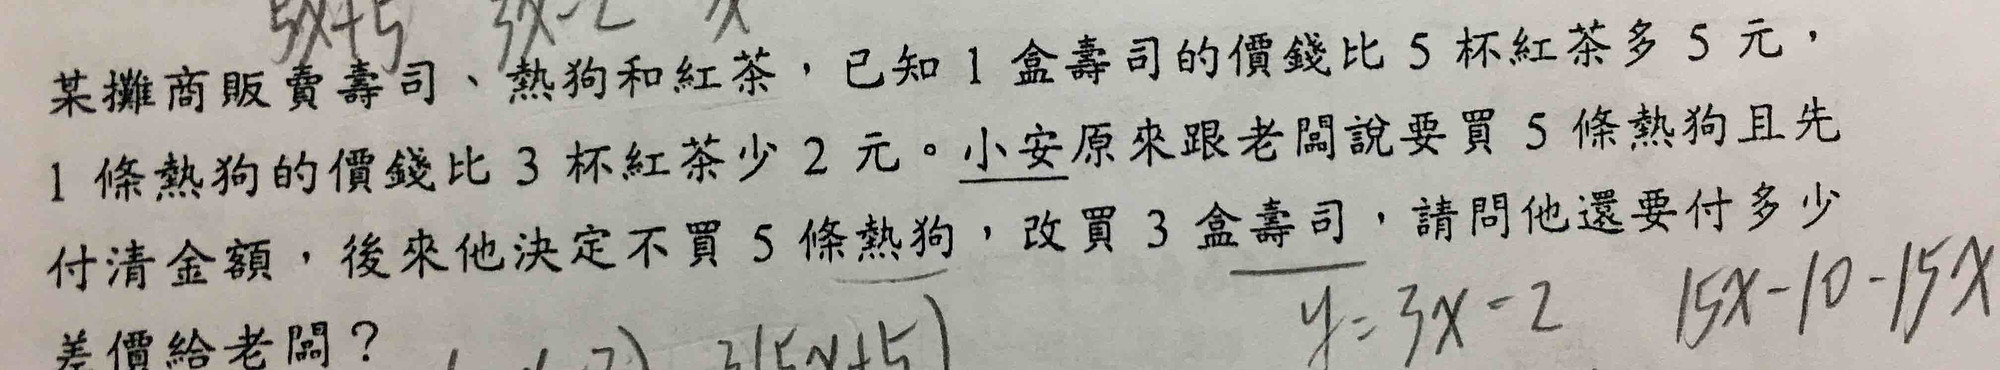 5x+5 3x-2 x
某攤商販賣壽司、熱狗和紅茶，已知 1 盒壽司的價錢比 5 杯紅茶多 5 元，
1 條熱狗的價錢比 3 杯紅茶少 2 元。小安原來跟老闆說要買 5 條熱狗且先
付清金額，後來他決定不買 5 條熱狗，改買 3 盒壽司，請問他還要付多少
差價給老闆？
3(5x+5)
y=3x-2 15x-10-15x